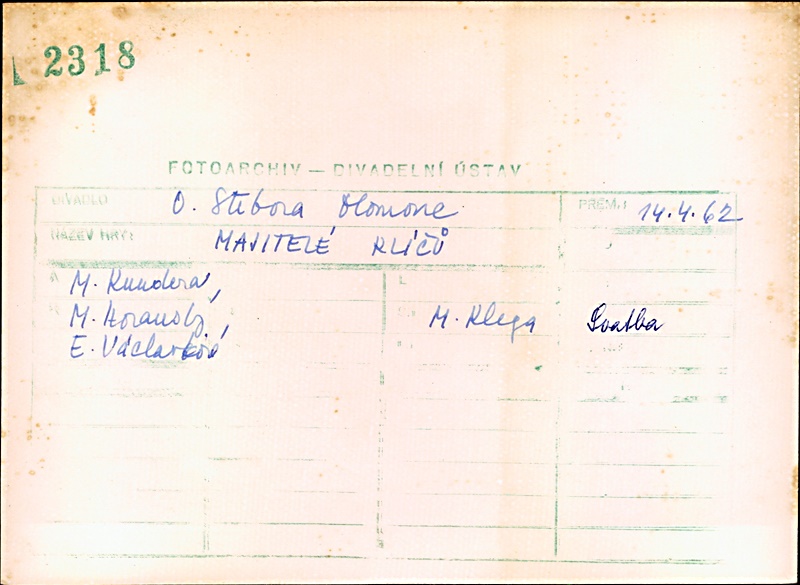 2318
FOTOARCHIV — DIVADELNÍ ÚSTAV
DIVADLO O. Stibora Olomouc PREM.: 14.4.62
NÁZEV HRY: MAJITELÉ KLÍČŮ
M. Kundera,
M. Horanský, M. Klega Svatba
E. Václavková